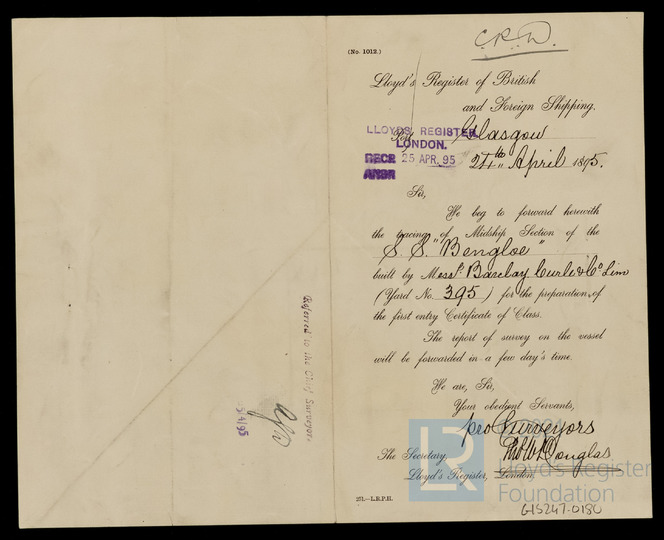 (No. 1012.)
C.R.D.
Lloyd's Register of British
and Foreign Shipping.
Port Glasgow
LLOYDS REGISTER
LONDON.
RECD 25 APR. 95
ANSR
24th April 1895.
Sir,
We beg to forward herewith
the tracing of Midship Section of the
S.S. "Bengloe"
built by Messrs. Barclay Curle & Co Lim
(Yard No. 395) for the preparation of
the first entry Certificate of Class.
The report of survey on the vessel
will be forwarded in a few day's time.
We are, Sir,
Your obedient Servants,
pro Surveyors
Douglas
The Secretary,
Lloyd's Register, London.
251.—L.R.P.H.
Referred to the Chief Surveyor.
LR
Lloyd's Register
Foundation
GLS247-0180